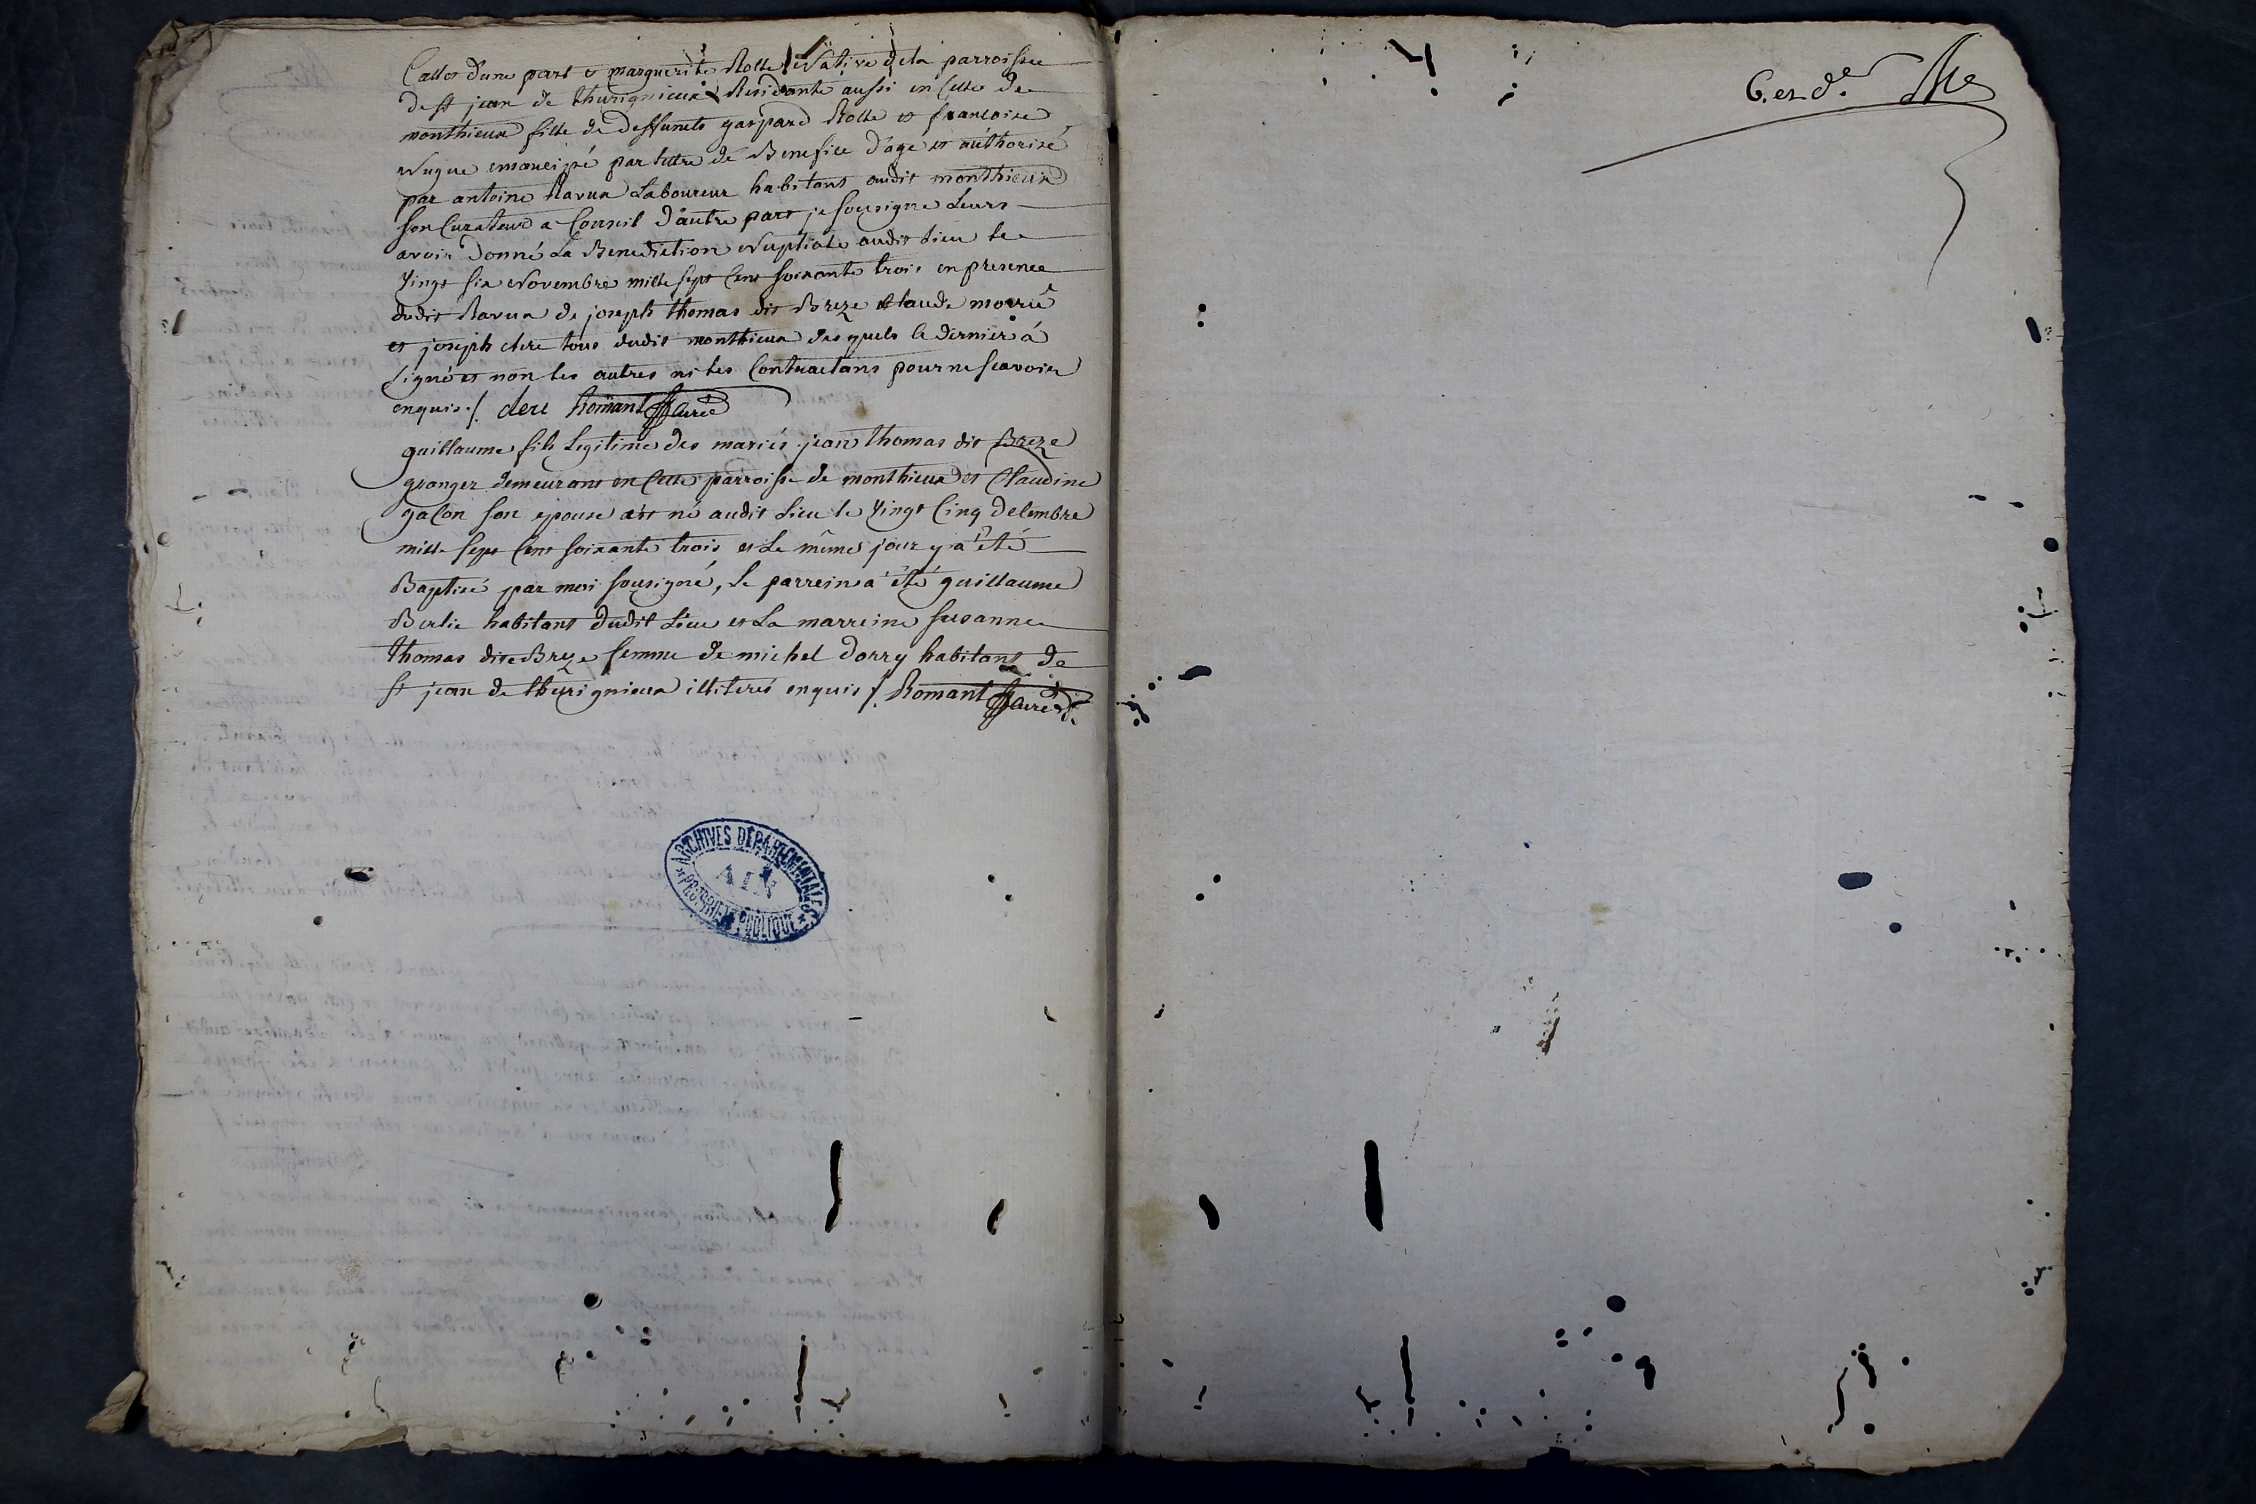 Callot d'une part & marguerite Rolle Native de la parroisse
de st jean de thurignieux Residante aussi en Cette de
monthieux fille de deffuncts gaspard Rolle et francoise
Nugue emancipé par lettre de Benefice d'age et authorisé
par antoine Ravux Laboureur habitant audit monthieux
son Curateur a Conseil d'autre part je sousigne Leurs
avoir Donné La Benediction Nuptiale audit Lieu le
Vingt six Novembre mille sept Cent soixante trois en presence
dudit Ravux de joseph thomas dit Breze Claude
et joseph clere tous dudit monthieux desquels le dernier á
signé et non les autres ni les Contractans pour ne scavoir
enquis ./. clere Romant Curé
guillaume fils Legitime des mariés jean thomas dit Breze
granger demeurant en Cette parroisse de monthieux et Claudine
galon son epouse est né audit Lieu le Vingt Cinq Decembre
mille sept Cent soixante trois et Le même jour y a été
Baptisé par moi sousigné, Le parrein a été guillaume
Berlie habitant dudit Lieu et La marreine susanne
thomas dite Breze femme de michel Dorry habitant de
st jean de thurignieux illiterés enquis ./. Romant Curé
6. et de.
ARCHIVES DÉPARTEMENTALES
AIN
PROPRIÉTÉ PUBLIQUE